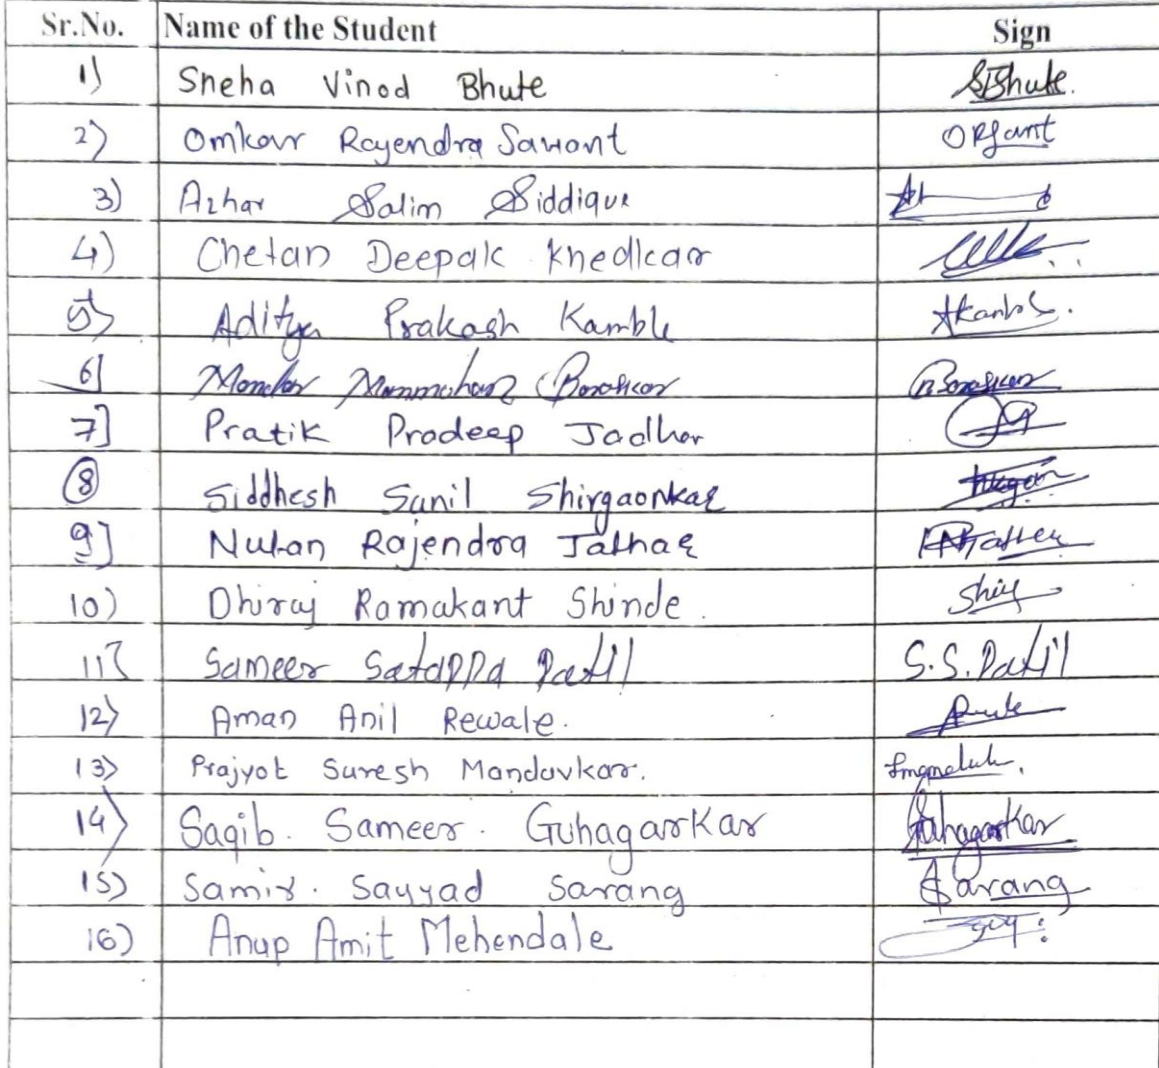 Sr.No. Name of the Student Sign
1) Sneha Vinod Bhute SBhute.
2) Omkar Rajendra Sawant
3) Azhar Salim Siddique
4) Chetan Deepak Khedkar
5) Aditya Prakash Kamble
6] Mandar Manmohan Borsikar
7] Pratik Pradeep Jadhav
8 Siddhesh Sunil Shirgaonkar
9] Nutan Rajendra Jathar
10) Dhiraj Ramakant Shinde.
11] Sameer Satappa Patil S.S.Patil
12) Aman Anil Rewale.
13) Prajyot Suresh Mandavkar.
14) Saqib. Sameer. Guhagarkar Guhagarkar
15) Samir. Sayyad Sarang Sarang
16) Anup Amit Mehendale